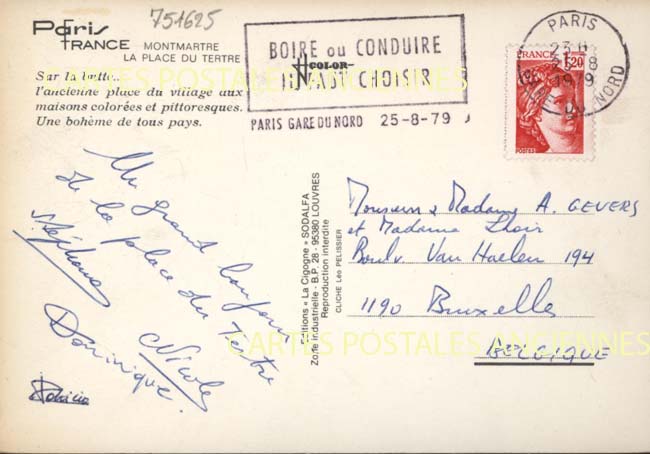 751625
Paris
FRANCE
MONTMARTRE
LA PLACE DU TERTRE
Sur la butte..
l'ancienne place du village aux
maisons colorées et pittoresques.
Une bohème de tous pays.
BOIRE ou CONDUIRE
COLOR-
IL FAUT CHOISIR
PARIS GARE DU NORD 25-8-79
PARIS
23 H
25-8
1979
GARE DU NORD
FRANCE
1,20
POSTES
CARTES POSTALES ANCIENNES
Un grand bonjour
de la place du Tertre
Stéphane
Nicole
Dominique.
Patricia
Editions « La Cigogne » SODALFA
Zone industrielle - B.P. 28 - 95380 LOUVRES
Reproduction interdite
CLICHE Léo PELISSIER
Monsieur & Madame A. GEVERS
et Madame
Boulv. Van Haelen 194
1190 Bruxelles
BELGIQUE
CARTES POSTALES ANCIENNES